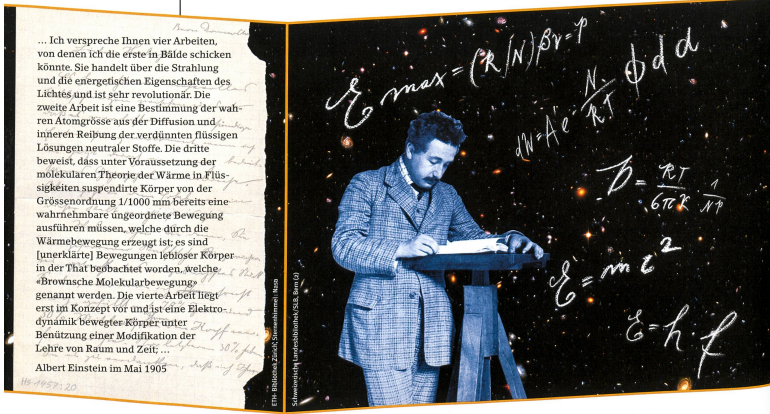 … Ich verspreche Ihnen vier Arbeiten,
von denen ich die erste in Bälde schicken
könnte. Sie handelt über die Strahlung
und die energetischen Eigenschaften des
Lichtes und ist sehr revolutionär. Die
zweite Arbeit ist eine Bestimmung der wah-
ren Atomgrösse aus der Diffusion und
inneren Reibung der verdünnten flüssigen
Lösungen neutraler Stoffe. Die dritte
beweist, dass unter Voraussetzung der
molekularen Theorie der Wärme in Flüs-
sigkeiten suspendirte Körper von der
Grössenordnung 1/1000 mm bereits eine
wahrnehmbare ungeordnete Bewegung
ausführen müssen, welche durch die
Wärmebewegung erzeugt ist; es sind
[unerklärte] Bewegungen lebloser Körper
in der That beobachtet worden, welche
«Brownsche Molekularbewegung»
genannt werden. Die vierte Arbeit liegt
erst im Konzept vor und ist eine Elektro-
dynamik bewegter Körper unter
Benützung einer Modifikation der
Lehre von Raum und Zeit; …
Albert Einstein im Mai 1905
HS 1457:20
ETH-Bibliothek Zürich, Sternenhimmel: Nasa
Schweizerische Landesbibliothek/SLB, Bern (2)
E max = (R/N)βν = P
dW = A e N/RT ϕ d d
D = RT/6πk 1/NP
E = m c²
E = h · f